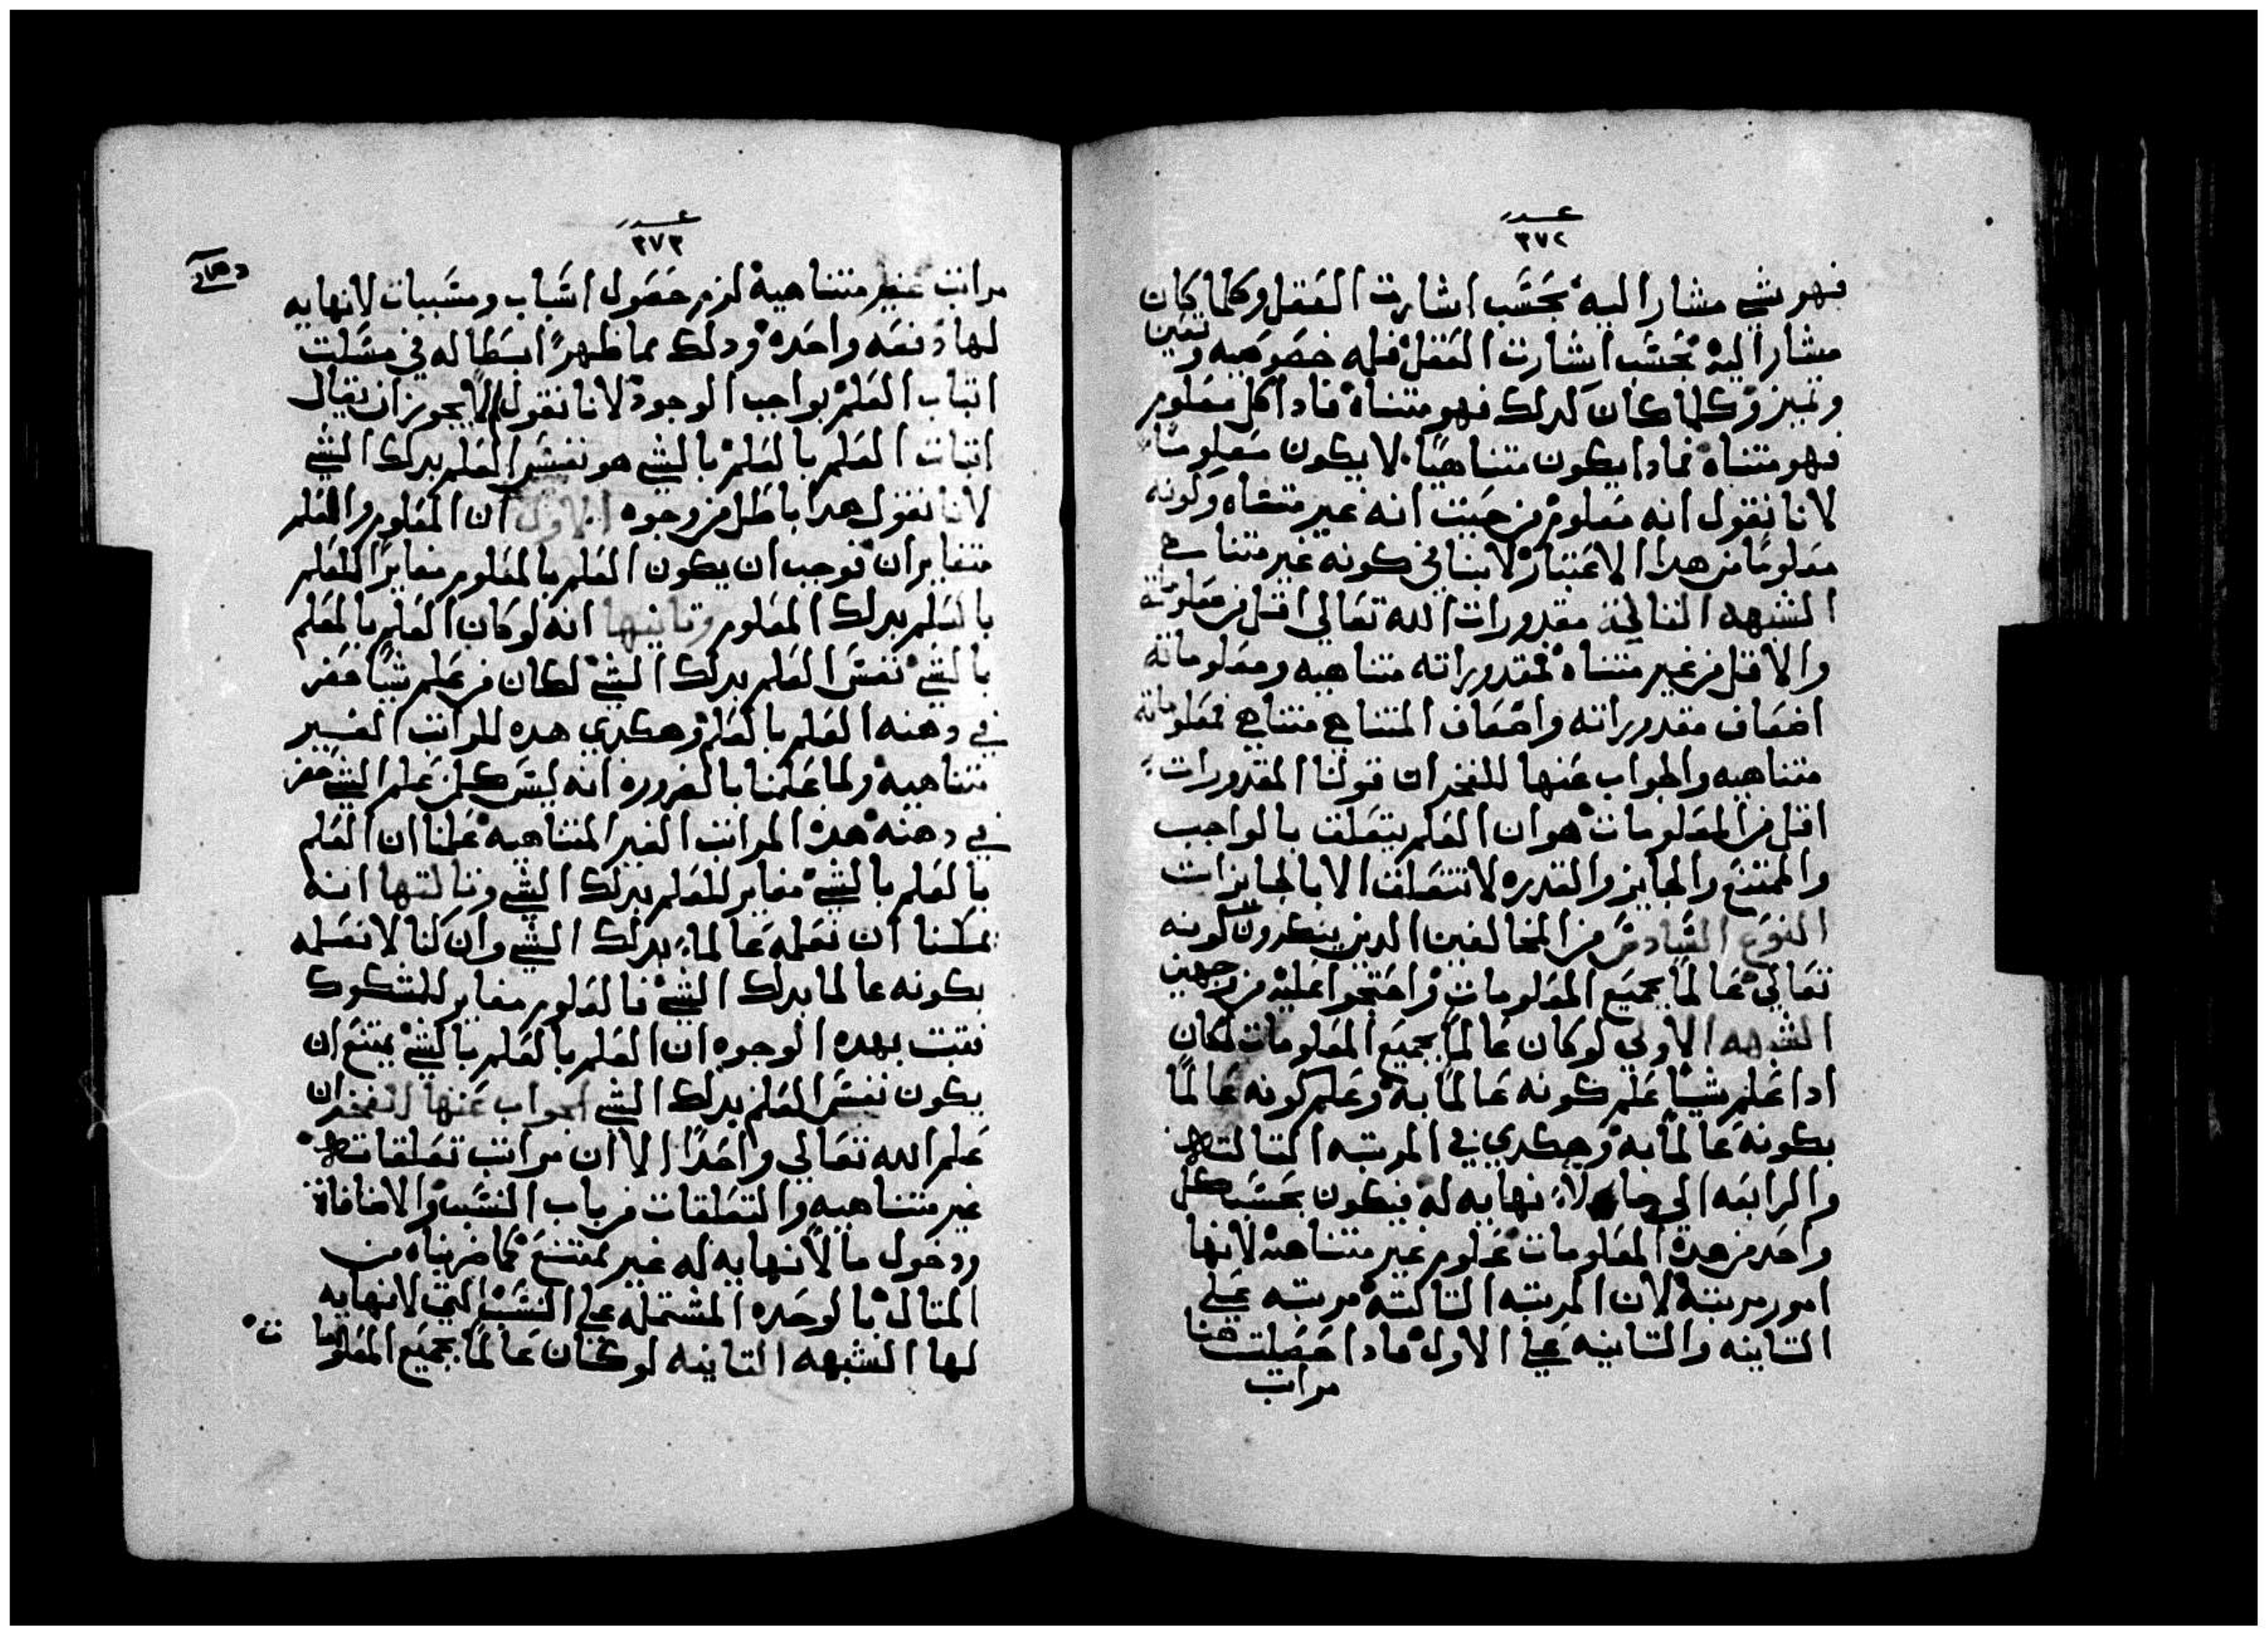 عدد
٣٧٢
فهو شي مشارا اليه بحسب اشارت العقل وكلما كان
مشارا اليه بحسب اشارت العقل فله خصوصيه وتعين
وتميز وكلما كان كدلك فهو متناه فادا كل معلوم
فهو متناه فمادا يكون متناهيا لا يكون معلوما
لانا نقول انه معلوم من حيت انه غير متناه وكونه
معلوما من هدا الاعتبار لا ينافي كونه غير متناهي
الشبهه التالتة مقدورات الله تعالي اقل من معلوماته
والاقل من غير متناه فمقدوراته متناهيه ومعلوماته
اضعاف مقدوراته واضعاف المتناهي متناهي فمعلوماته
متناهيه والجواب عنها للفخر ان قولنا المقدورات
اقل من المعلومات هو ان العلم يتعلق بالواجب
والممتنع والجايز والقدره لا تتعلق الا بالجايزات
النوع السادس من المخالفين الدين ينكرون كونه
تعالي عالما بجميع المعلومات واحتجوا عليه من وجهين
الشبهه الاولي لو كان عالما بجميع المعلومات لكان
ادا علم شيا علم كونه عالما به وعلم كونه عالما
بكونه عالما به وهكدي في المرتبه التالته
والرابعه الي ما لا نهايه له فيكون بحسب كل
واحد من هده المعلومات علوم غير متناهيه لانها
امور مرتبة لان المرتبه التالته مرتبه علي
التانيه والتانيه علي الاول فادا حصلت هنا
مراتب
عدد
٣٧٣
مراتب غير متناهية لزم حصول اسباب ومسببات لا نهايه
لها دفعه واحده ودلك مما ظهر ابطاله في مسلت
اتبات العلم بواجب الوجود لانا نقول لا يجوز ان يقال
اتبات العلم بالعلم بالشي هو نفس العلم بدلك الشي
لانا نقول هدا باطل من وجوه الاول ان المعلوم والعلم
متغايران فوجب ان يكون العلم بالمعلوم مغايرا للعلم
بالعلم بدلك المعلوم وتانيها انه لو كان العلم بالعلم
بالشي نفس العلم بدلك الشي لكان من علم شيا حضر
في دهنه العلم بالعلم وهكدي هده المراتب الغير
متناهيه ولما علمنا بالضروره انه ليس كل من علم الشي حضر
في دهنه هده المراتب الغير المتناهيه علمنا ان العلم
بالعلم بالشي مغاير للعلم بدلك الشي وتالتها انه
يمكننا ان نعلمه عالما بدلك الشي وان كنا لا نعلمه
بكونه عالما بدلك الشي فالمعلوم مغاير للمشكوك
فتبت بهده الوجوه ان العلم بالعلم بالشي يمتنع ان
يكون نفس العلم بدلك الشي الجواب عنها للفخر ان
علم الله تعالي واحدا الا ان مراتب تعلقاته
غير متناهيه والتعلقات من باب النسب والاضافاة
ودخول ما لا نهايه له غير ممتنع كما ضربناه من
المتال بالوحده المشتمله علي النسب التي لا نهايه
لها الشبهه التانيه لو كان عالما بجميع المعلومات